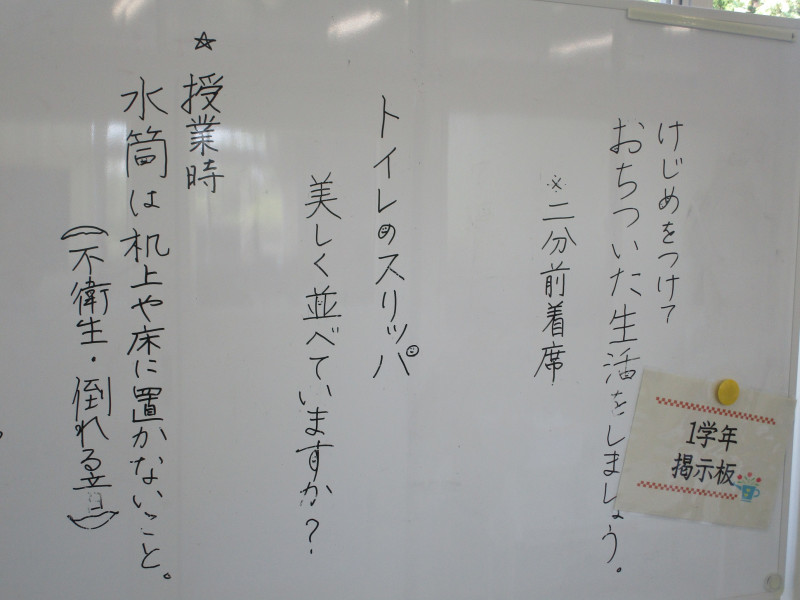 けじめをつけて
おちついた生活をしましょう。
※二分前着席
トイレのスリッパ
美しく並べていますか?
☆授業時
水筒は机上や床に置かないこと。
(不衛生・倒れる音)
1学年
掲示板